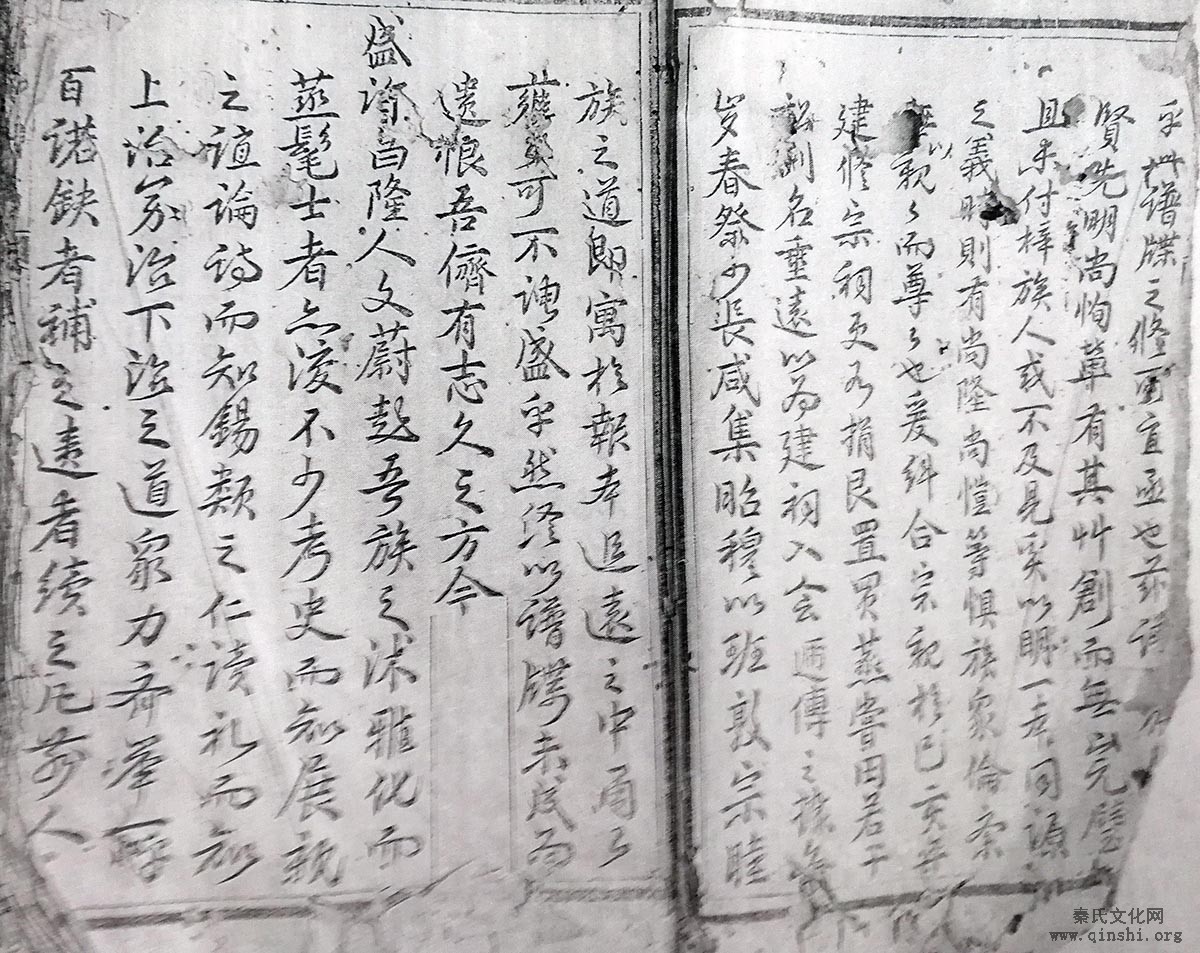 乎此譜牒之修寔宜亟也茲譜
賢先明尚恂輩有其艸創而無以元璧
且未付梓族人或不及見奚以明一本同源
之義時則有尚隆尚愷等懼族眾倫紊
無以親々而尊々也爰紏合宗親於己亥年
建修宗祠更为捐艮置買蒸嘗田若干
名垂遠以为建祠入会逓傳之據每
岁春祭少長咸集昭穆以班敦宗睦
族之道即寓於報本追遠之中甬々
雍雍可不謂盛乎然終以譜牒未成为
遺恨吾儕有志久之方今
盛治日隆人文蔚起吾族之沐雅化而
蒸髦士者亦复不少考史而知展親
之誼論詩而知錫類之仁读礼而知
上治旁治下治之道衆力齐举一呼
百诺缺者補之遺者续之凡前人
秦氏文化网
www.qinshi.org